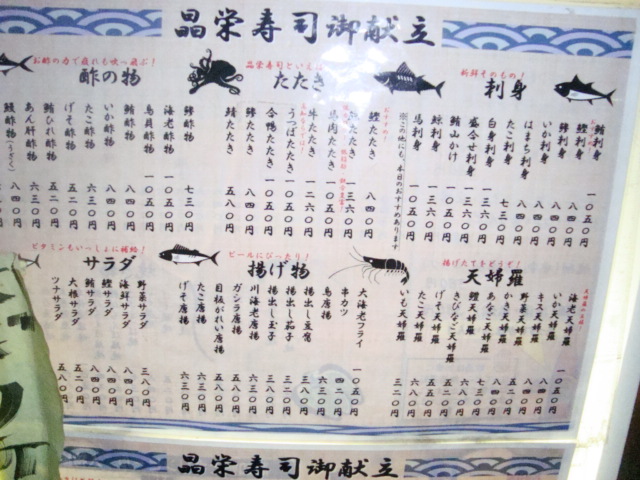 晶栄寿司御献立
新鮮そのもの！
刺身
鮪刺身 一〇五〇円
鰹刺身 八四〇円
鯵刺身 八四〇円
いか刺身 八四〇円
はまち刺身 八四〇円
たこ刺身 七三〇円
白身刺身 一三六〇円
盛合せ刺身
鮪山かけ 一〇五〇円
鯨刺身 一三六〇円
馬刺身 一〇五〇円
※この他にも、本日のおすすめあります
晶栄寿司といえば
たたき
おすすめ！
鰹たたき 八四〇円
たたき 一三六〇円
馬肉たたき 一〇五〇円
牛たたき 一二六〇円
うつぼたたき 一〇五〇円
合鴨たたき 一〇五〇円
鯵たたき 八四〇円
鯖たたき 五八〇円
お酢の力で疲れも吹っ飛ぶ！
酢の物
鯵酢物 七三〇円
海老酢物 一〇五〇円
鳥貝酢物 一〇五〇円
鮪酢物 八四〇円
いか酢物 八四〇円
たこ酢物 六三〇円
げそ酢物 五二〇円
鮪ひれ酢物 五二〇円
あん肝酢物 六三〇円
鰻酢物（うざく） 八四〇円
揚げたてをどうぞ！
天婦羅
海老天婦羅 一〇五〇円
いか天婦羅 八四〇円
キス天婦羅 八四〇円
野菜天婦羅 五二〇円
かき天婦羅 八四〇円
あなご天婦羅 七三〇円
鱧天婦羅 八四〇円
きびなご天婦羅 六三〇円
げそ天婦羅 五五〇円
たこ天婦羅 六八〇円
いも天婦羅 三二〇円
ビールにぴったり！
揚げ物
大海老フライ 一〇五〇円
串カツ 四二〇円
鳥唐揚 六三〇円
揚出し豆腐 三八〇円
揚出し茄子 三八〇円
揚出し玉子 三八〇円
川海老唐揚 六三〇円
ガシラ唐揚 五八〇円
目板がれい唐揚 五八〇円
たこ唐揚 六三〇円
げそ唐揚 六三〇円
ビタミンもいっしょに補給！
サラダ
野菜サラダ 三八〇円
海鮮サラダ 八四〇円
鰹サラダ 八四〇円
鮪サラダ 八四〇円
大根サラダ 五二〇円
ツナサラダ 五八〇円
晶栄寿司御献立